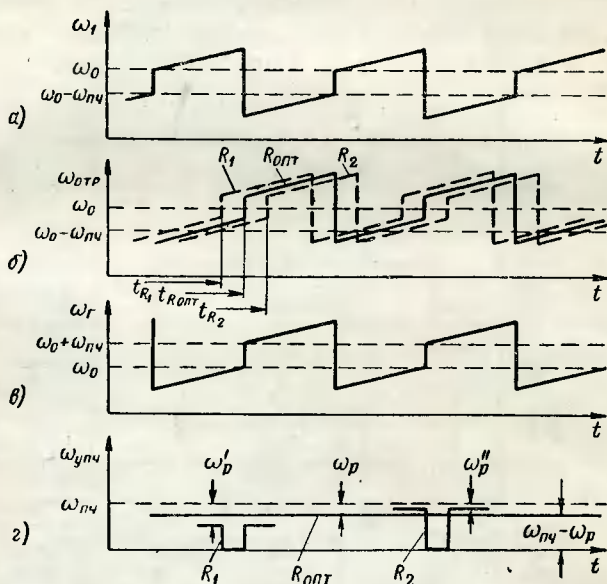 ω₁
ω₀
ω₀−ωпч
а)
t
ωотр
R₁
Rопт
R₂
ω₀
ω₀−ωпч
б)
t
tR₁
tRопт
tR₂
ωг
ω₀+ωпч
ω₀
в)
t
ωупч
ω′р
ωр
ω″р
ωпч
г)
ωпч−ωр
R₁
Rопт
R₂
t